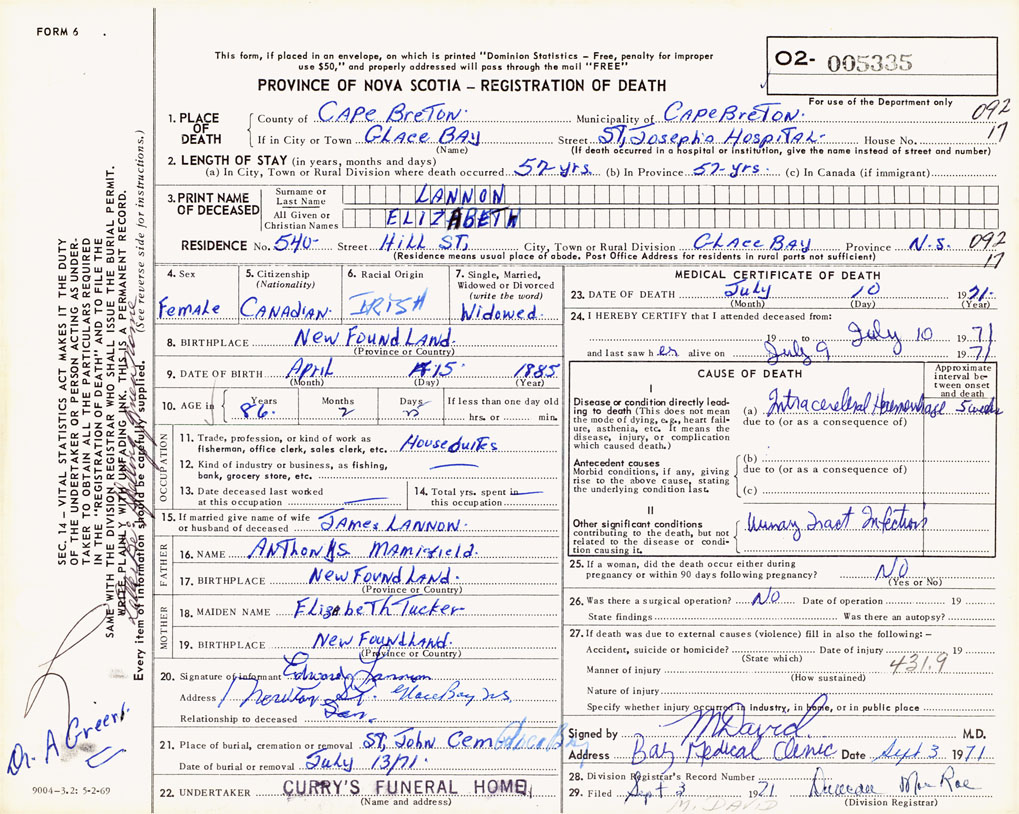 FORM 6
This form, if placed in an envelope, on which is printed "Dominion Statistics – Free, penalty for improper
use $50," and properly addressed will pass through the mail "FREE"
PROVINCE OF NOVA SCOTIA – REGISTRATION OF DEATH
02- 005335
For use of the Department only
SEC. 14 – VITAL STATISTICS ACT MAKES IT THE DUTY
OF THE UNDERTAKER OR PERSON ACTING AS UNDER-
TAKER TO OBTAIN ALL THE PARTICULARS REQUIRED
IN THE "REGISTRATION OF DEATH" AND TO FILE THE
SAME WITH THE DIVISION REGISTRAR WHO SHALL ISSUE THE BURIAL PERMIT.
WRITE PLAINLY WITH UNFADING INK. THIS IS A PERMANENT RECORD.
Every item of information should be carefully supplied. (See reverse side for instructions.)
1. PLACE OF DEATH
County of Cape Breton. Municipality of Cape Breton. 092
If in City or Town Glace Bay Street St, Joseph's Hospital House No. 17
(Name) (If death occurred in a hospital or institution, give the name instead of street and number)
2. LENGTH OF STAY (in years, months and days)
(a) In City, Town or Rural Division where death occurred 57-yrs. (b) In Province 57-yrs. (c) In Canada (if immigrant)
3. PRINT NAME OF DECEASED
Surname or Last Name LANNON
All Given or Christian Names ELIZABETH
RESIDENCE No. 540- Street Hill St, City, Town or Rural Division Glace Bay Province N.S. 092
(Residence means usual place of abode. Post Office Address for residents in rural parts not sufficient) 17
4. Sex
Female
5. Citizenship
(Nationality)
Canadian.
6. Racial Origin
IRISH
7. Single, Married,
Widowed or Divorced
(write the word)
Widowed.
8. BIRTHPLACE New Found Land.
(Province or Country)
9. DATE OF BIRTH April 15 1885
(Month) (Day) (Year)
10. AGE in Years 86. Months 2 Days If less than one day
hrs. or min.
OCCUPATION
11. Trade, profession, or kind of work as
fisherman, office clerk, sales clerk, etc. House duites
12. Kind of industry or business, as fishing,
bank, grocery store, etc.
13. Date deceased last worked
at this occupation
14. Total yrs. spent in
this occupation
15. If married give name of wife
or husband of deceased James Lannon.
FATHER
16. NAME Anthony
17. BIRTHPLACE New Found Land.
(Province or Country)
MOTHER
18. MAIDEN NAME Elizabeth Tucker
19. BIRTHPLACE New Found Land.
(Province or Country)
20. Signature of informant Edward Lannon
Address St. Glace Bay NS
Relationship to deceased Son.
21. Place of burial, cremation or removal St, John Cem Glace Bay
Date of burial or removal July 13/71
22. UNDERTAKER CURRY'S FUNERAL HOME
(Name and address)
MEDICAL CERTIFICATE OF DEATH
23. DATE OF DEATH July 10 1971.
(Month) (Day) (Year)
24. I HEREBY CERTIFY that I attended deceased from:
19 to July 10 1971
and last saw her alive on July 9 1971
CAUSE OF DEATH
Approximate
interval be-
tween onset
and death
I
Disease or condition directly lead-
ing to death (This does not mean
the mode of dying, e.g., heart fail-
ure, asthenia, etc. It means the
disease, injury, or complication
which caused death.)
(a) Intracerebral Haemorrhage 5 weeks
due to (or as a consequence of)
Antecedent causes
Morbid conditions, if any, giving
rise to the above cause, stating
the underlying condition last.
(b)
due to (or as a consequence of)
(c)
II
Other significant conditions
contributing to the death, but not
related to the disease or condi-
tion causing it.
Urinary Tract Infection
25. If a woman, did the death occur either during
pregnancy or within 90 days following pregnancy? NO
(Yes or No)
26. Was there a surgical operation? NO Date of operation 19
State findings Was there an autopsy?
27. If death was due to external causes (violence) fill in also the following: –
Accident, suicide or homicide? Date of injury 19
(State which)
Manner of injury 431.9
(How sustained)
Nature of injury
Specify whether injury occurred in industry, in home, or in public place
Signed by M David M.D.
Address Bay Medical Clinic Date Sept 3 1971
28. Division Registrar's Record Number
29. Filed Sept 3 1971 Duncan MacRae
(Division Registrar)
M. DAVID
Dr. A Green.
9004-3.2: 5-2-69